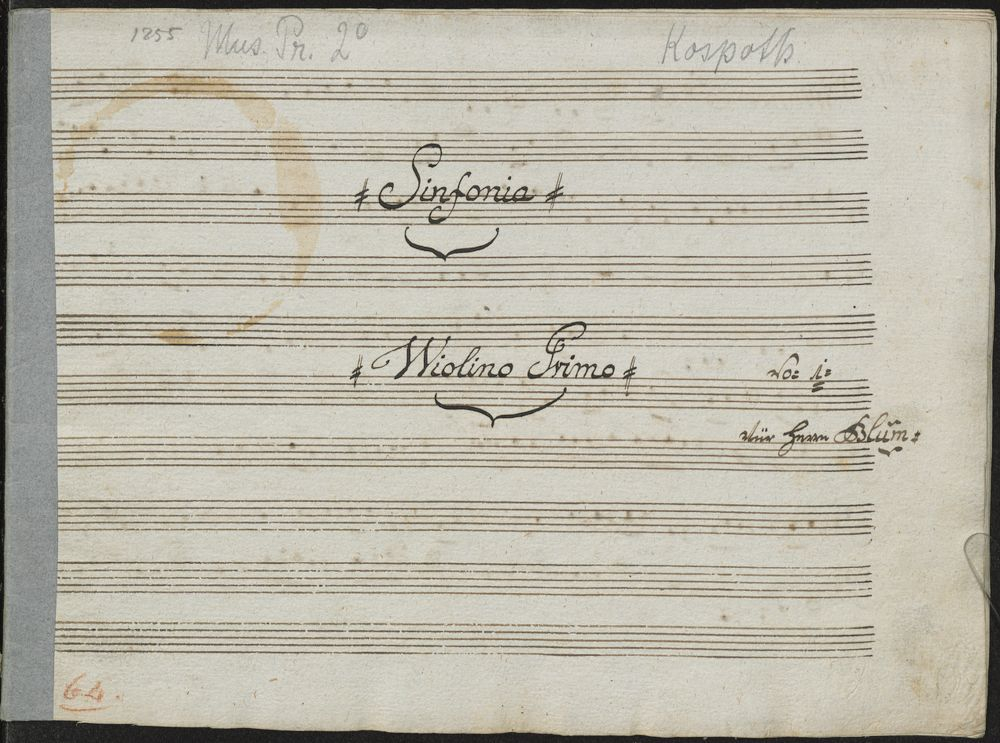 1255 Mus. Pr. 2° Kospoth
Sinfonia
Wiolino Primo
No: 1:
Vür Herrn Blum:
64.